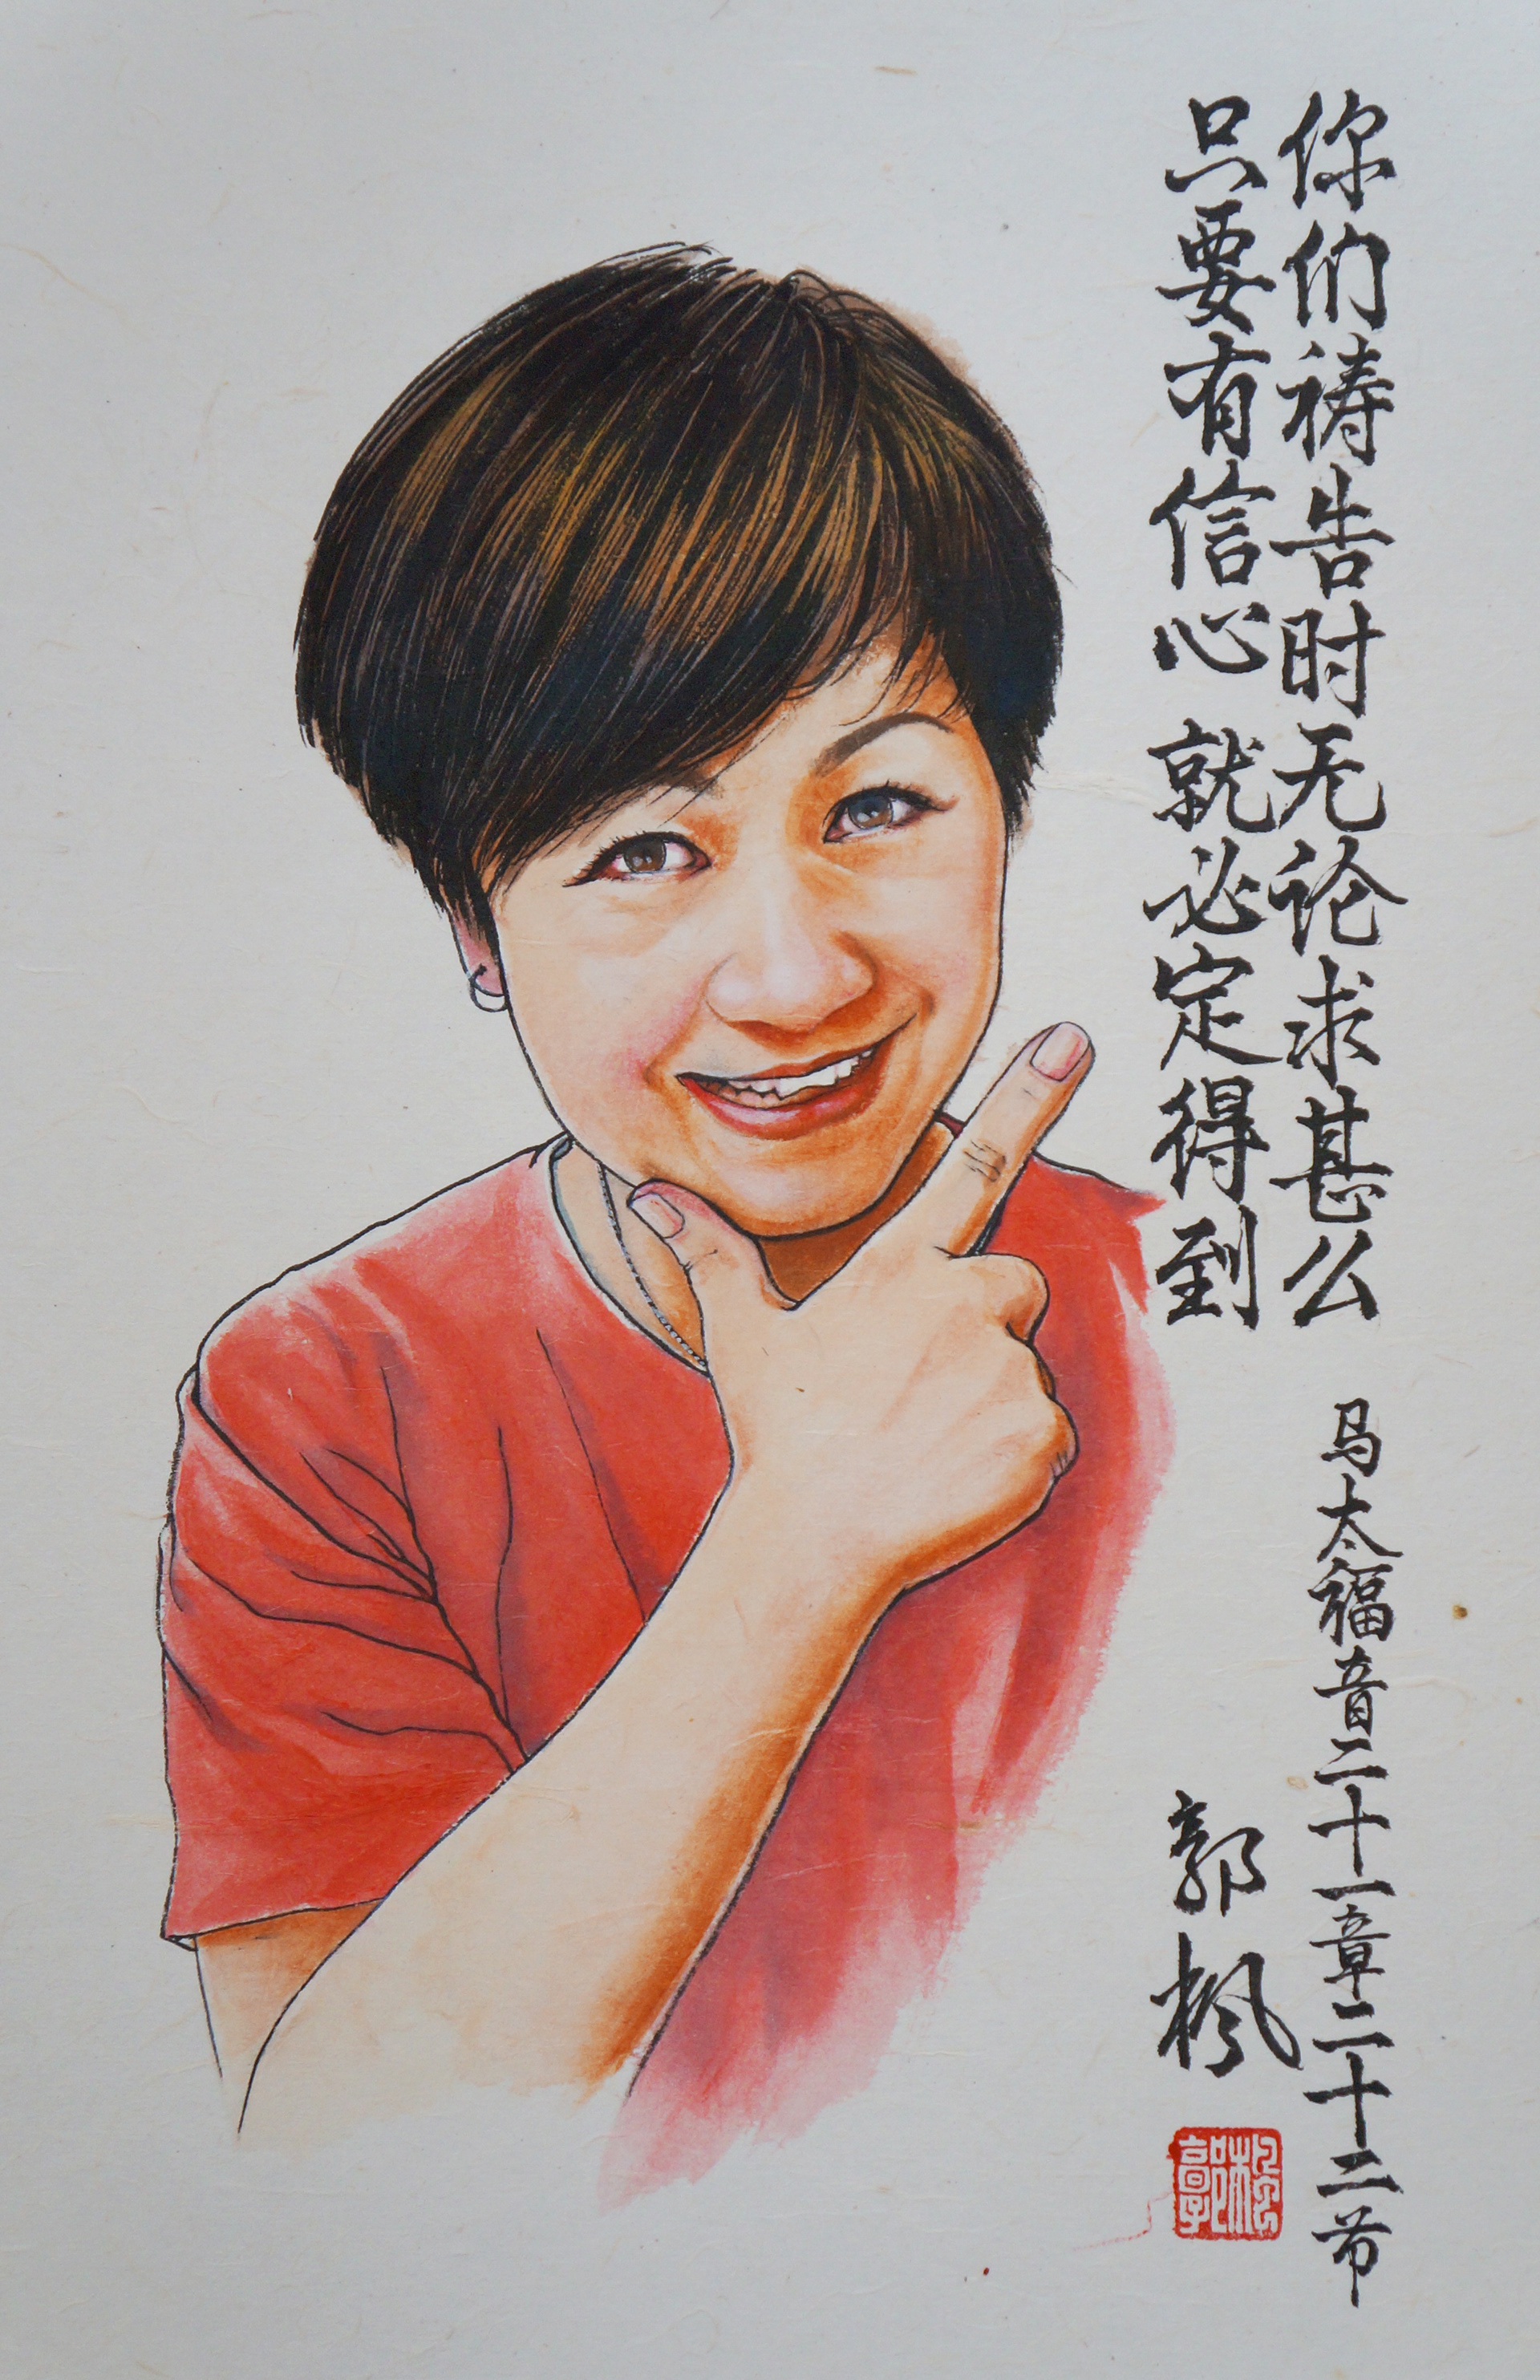 你们祷告时无论求甚么
只要有信心 就必定得到
马太福音二十一章二十二节
郭枫
郭枫